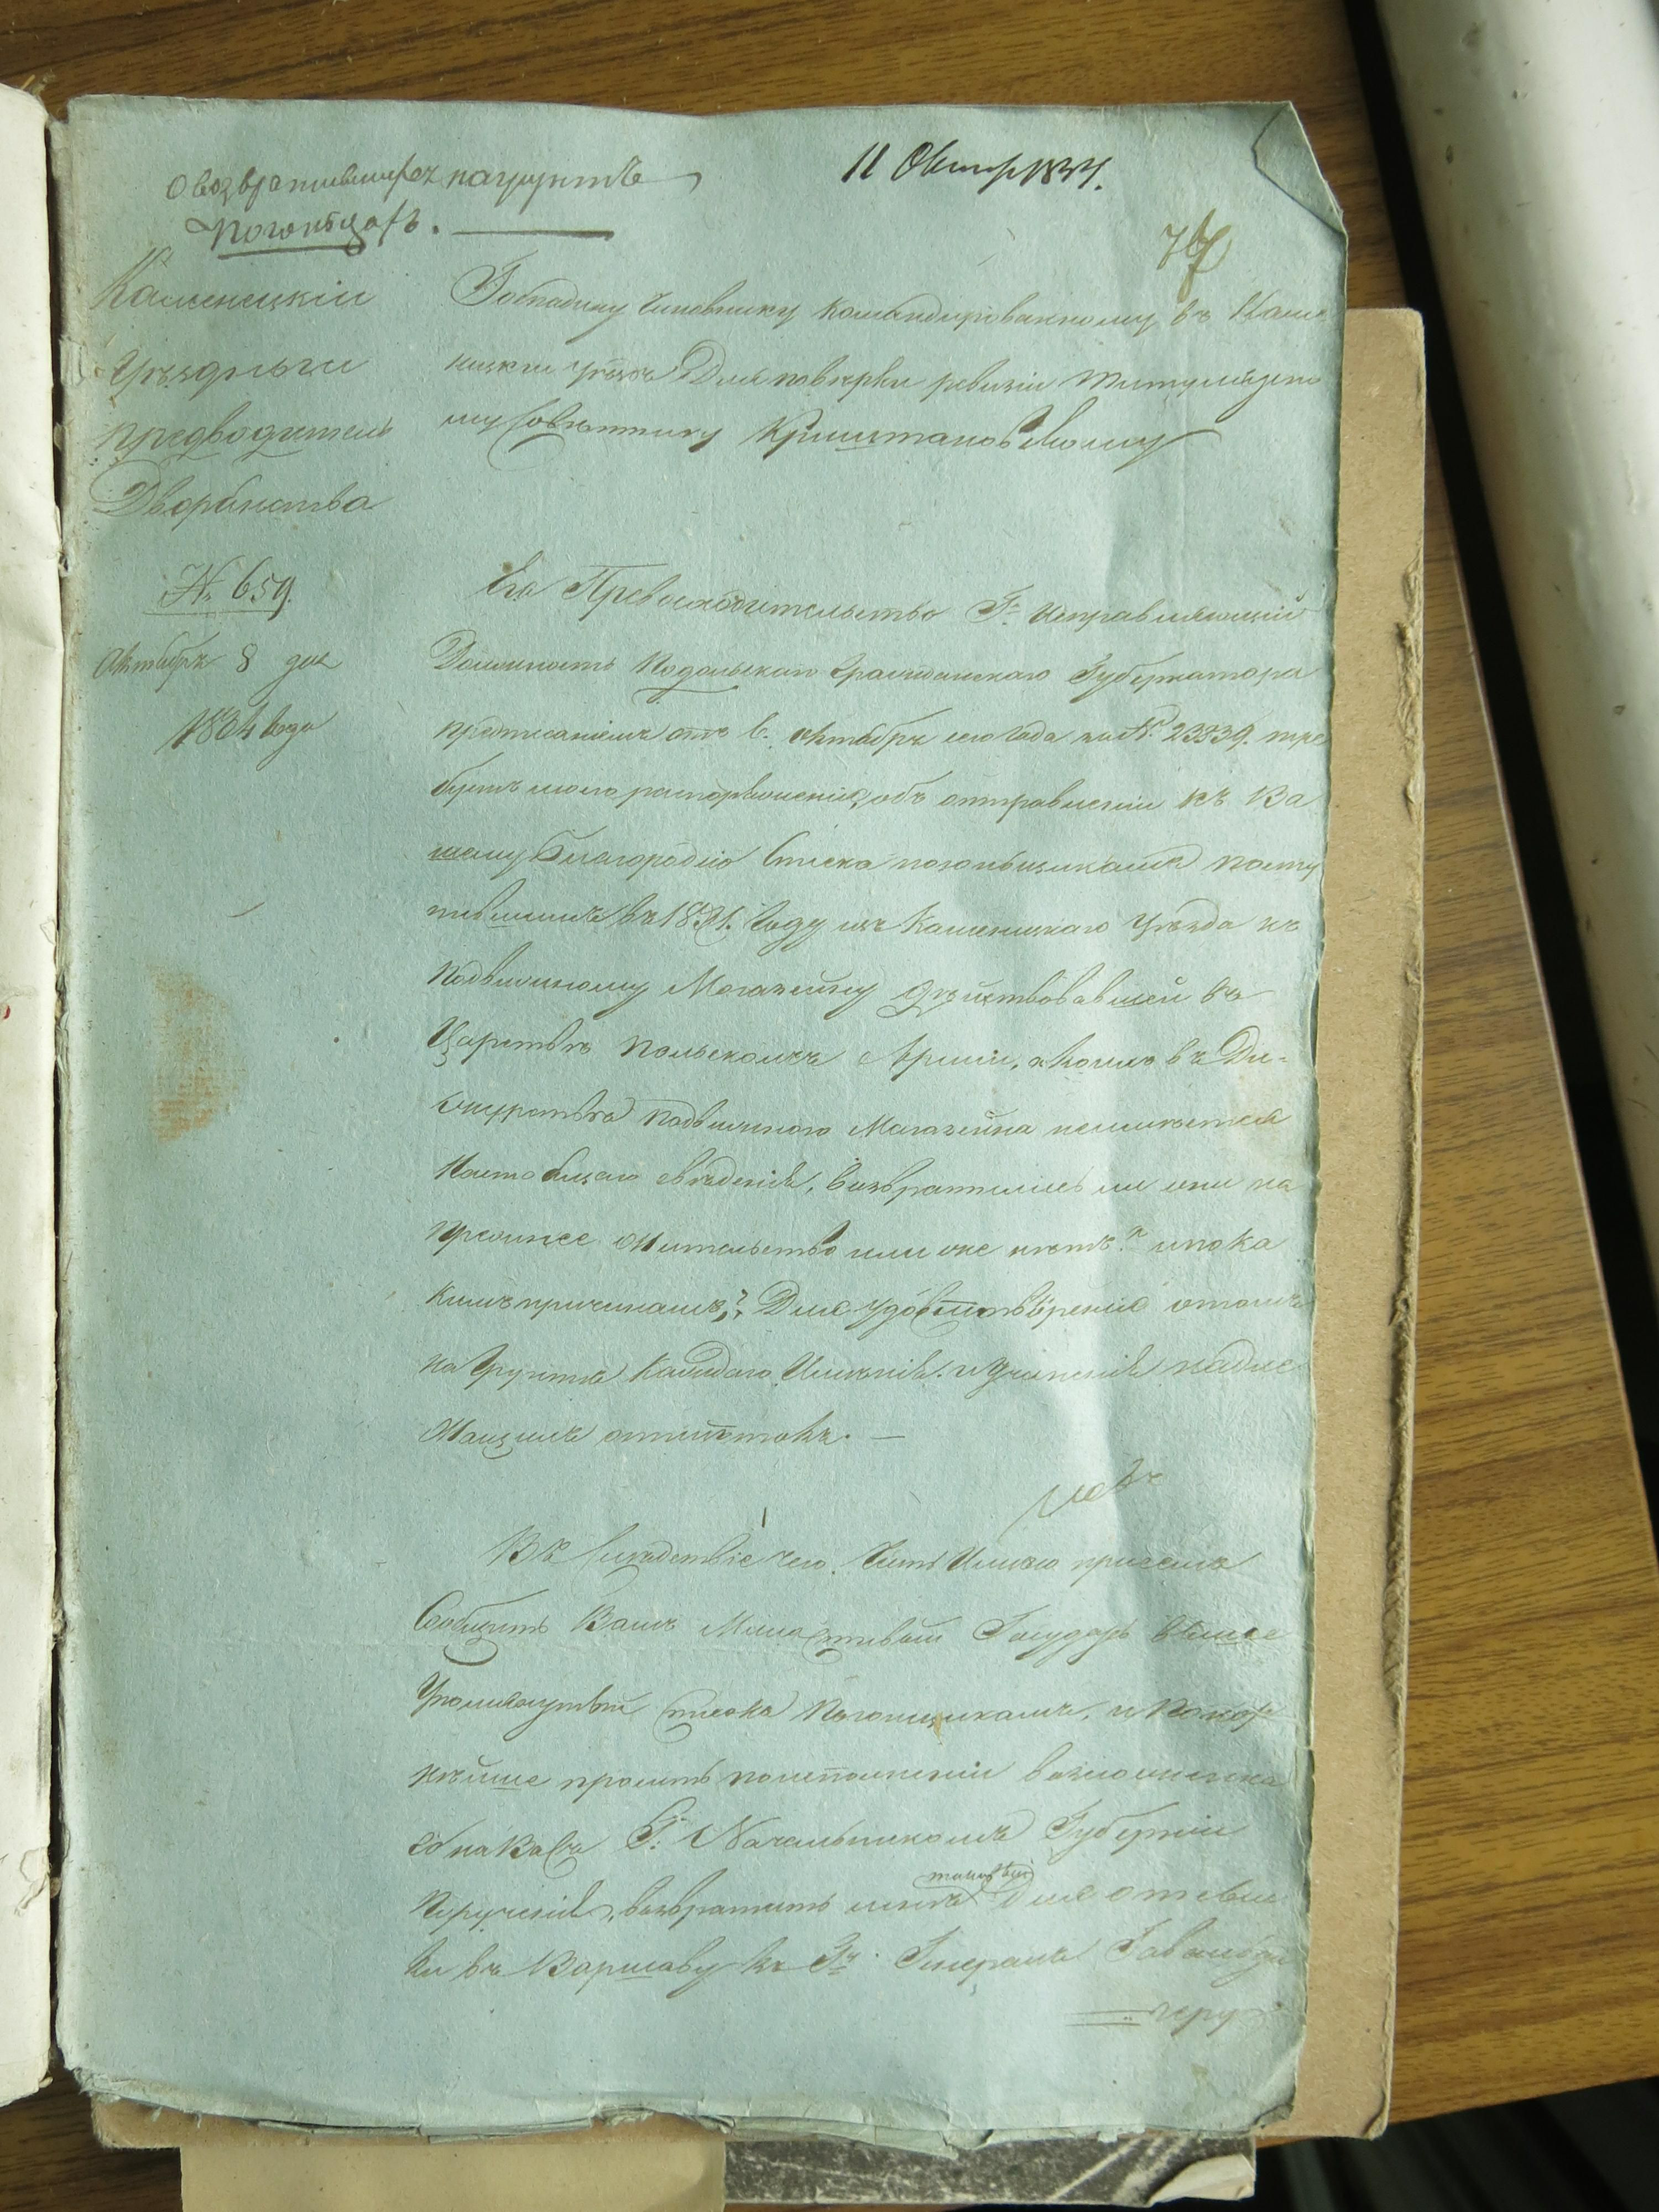 О возвратившихся на грунтъ
погонцахъ.
11 Октяб 1834.
77
Каменецкій
Уѣздный
предводитель
Дворянства
№ 659.
Октября 8 дня
1834 года
Господину Чиновнику командированному въ Каме-
нецкій уѣздъ Для повѣрки ревизіи Титулярно-
му Совѣтнику Криштановскому
Его Превосходительство Г. Исправляющій
Должность Подольскаго Гражданскаго Губернатора
предписаніемъ отъ 6. октября сего года за №. 23839. тре
буетъ моего распоряженія, объ отправленіи къ Ва
шему Благородію Списка погоньщикамъ посту
пившимъ въ 1831. Году изъ Каменецкаго Уѣзда къ
Подвижному Магазейну дѣйствовавшей въ
Царствѣ Польскомъ Арміи, о коихъ въ Ди-
журствѣ Подвижнаго Магазейна неимѣется
Настоящаго свѣденія, возвратились ли они на
прежнее жительство или же нѣтъ? и по ка
кимъ причинамъ,? Для удостовѣренія о томъ
на грунтѣ Каждаго Имѣнія. и Учиненія надле
жащихъ отмѣтокъ. —
В Слѣдствіе чего. Честь Имѣю при семъ
Сообщить Вамъ Милостивый Государь выше
Упомянутый списокъ Погонщикамъ, и Покор
нѣйше просить по исполненіи возложеннаго
на Васъ Г. Начальникомъ Губерніи
Порученія, возвратить мнѣ таковый Для отсыл
ки въ Варшаву къ Г. Генералъ Гевальди
геру